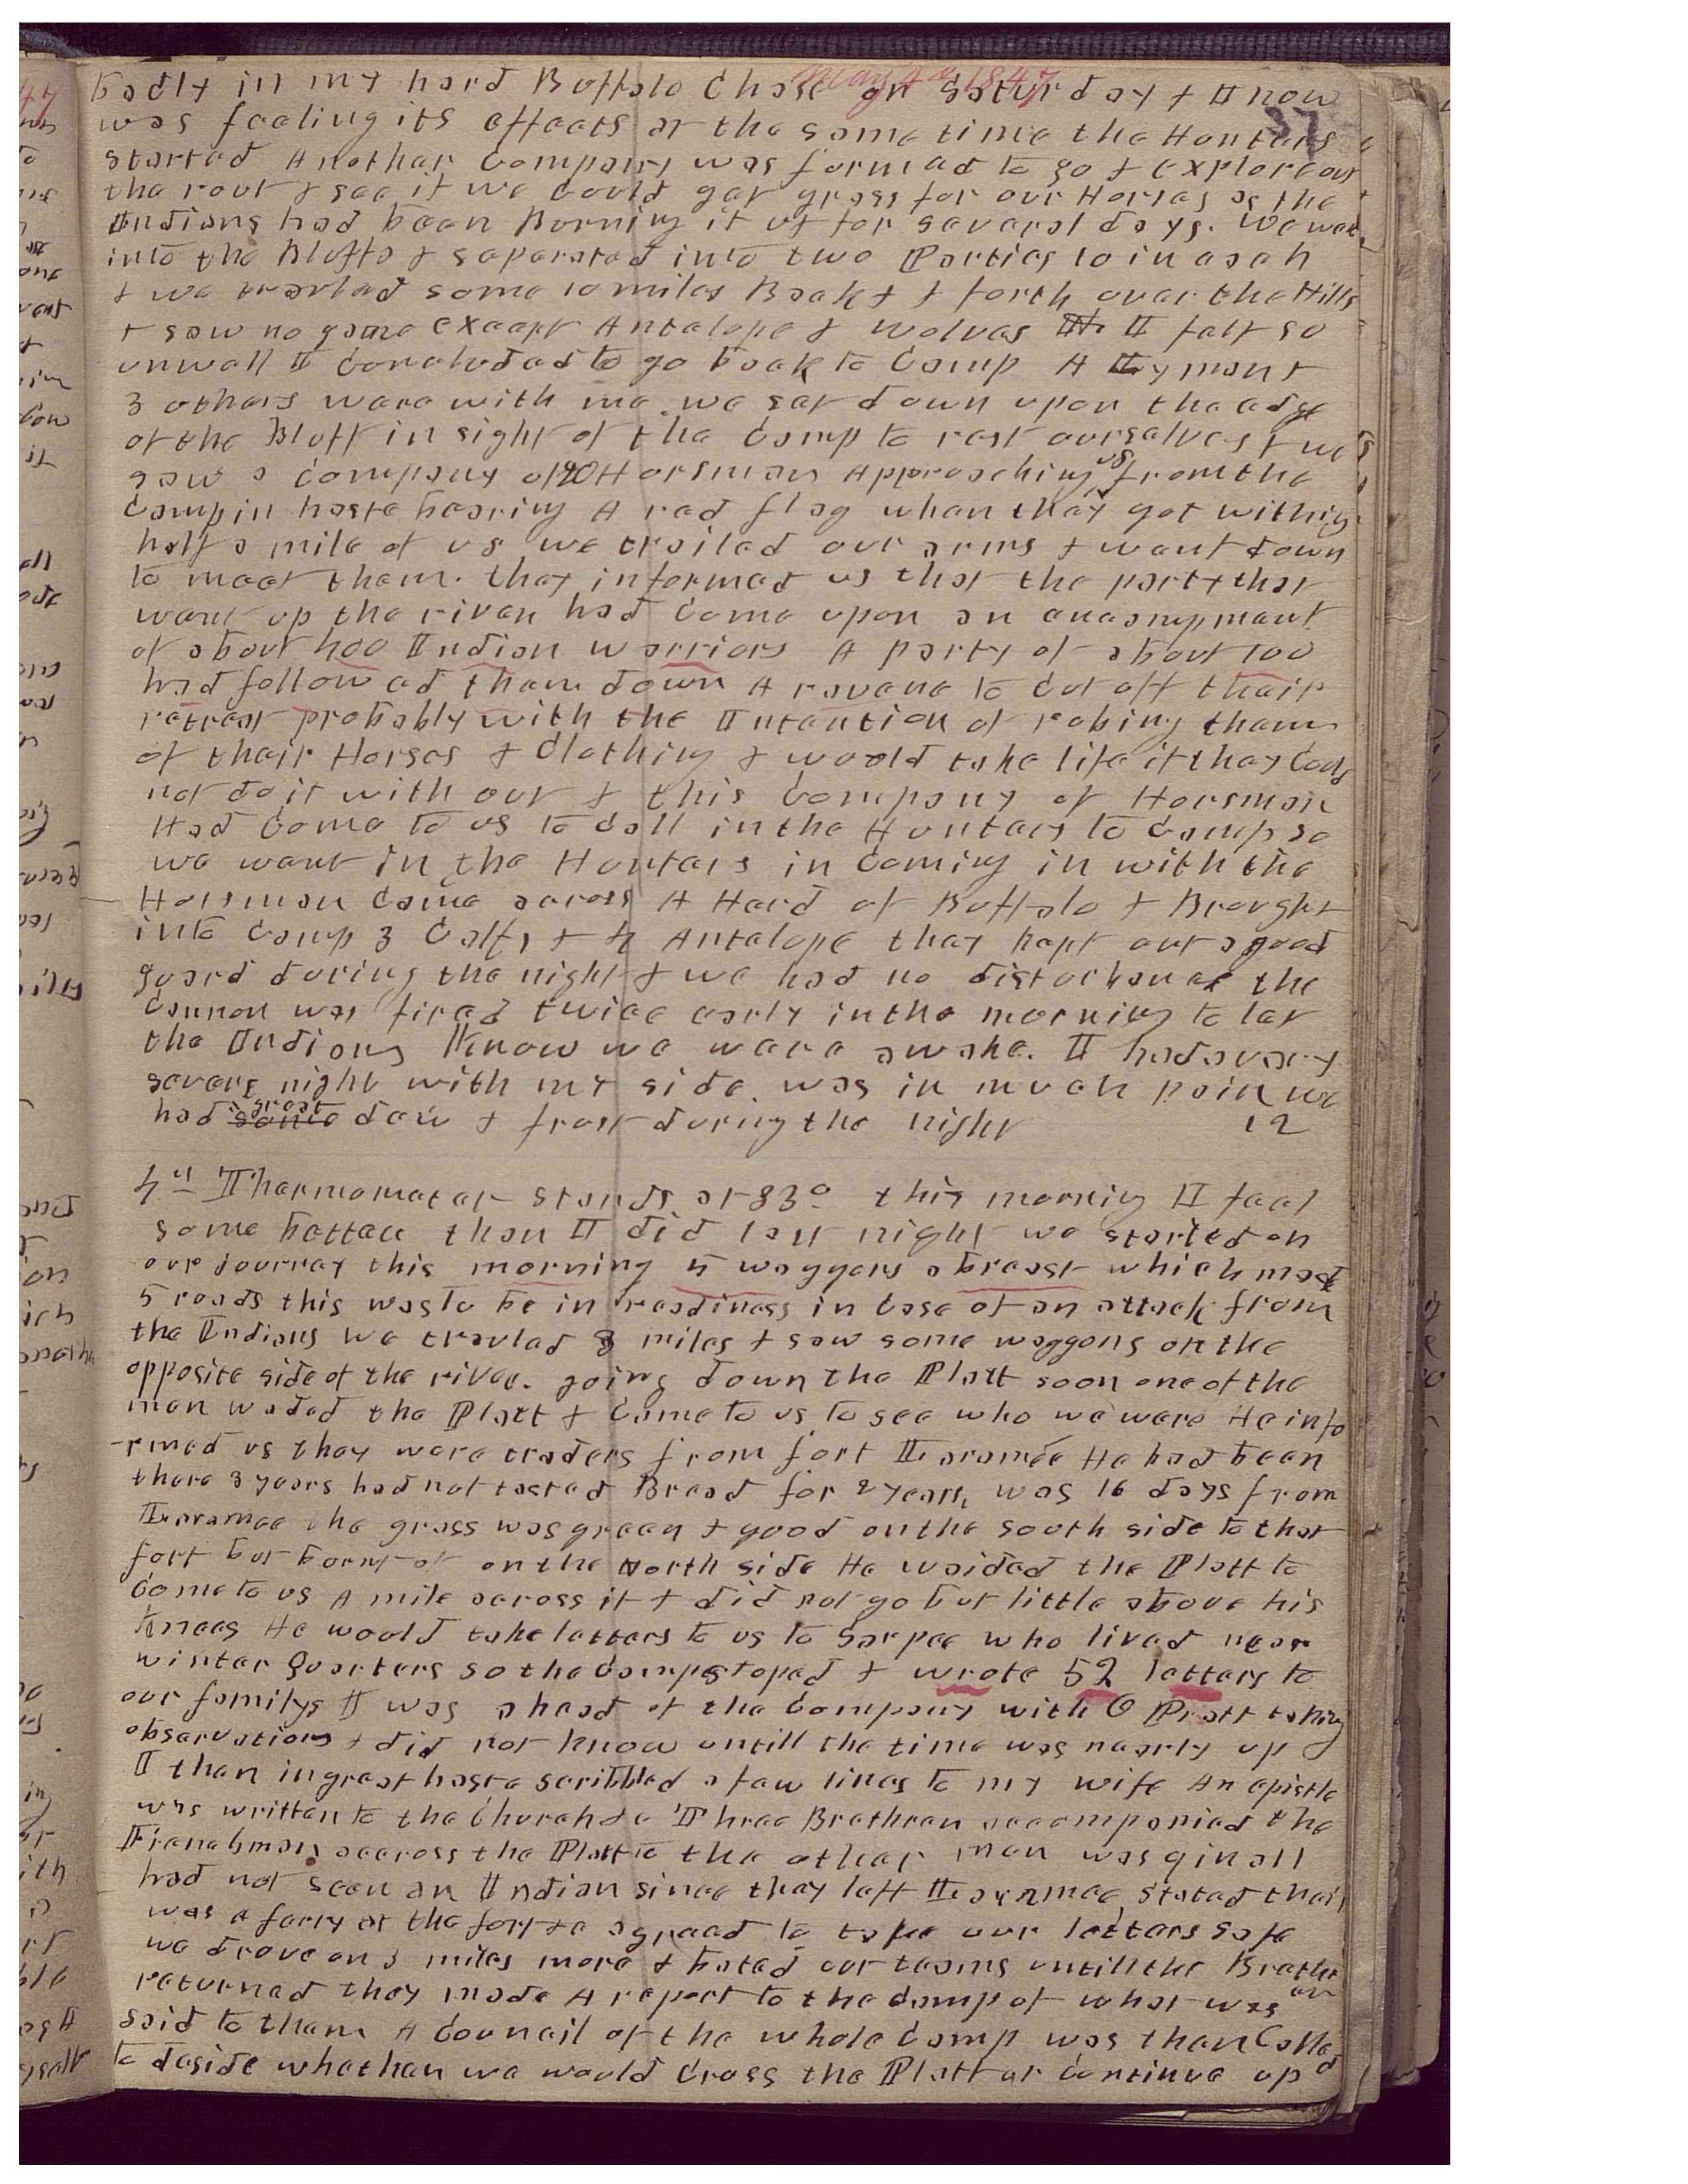 May 4th 1847
37
badly in my hard Buffalo Chase on Saturday & I now
was feeling its effects at the same time the Hunters
started Another Company was formed to go & explore out
the rout & see if we Could get grass for our Horses as the
Indians had been Burning it up for several days. We went
into the Bluffs & separated into two Parties 10 in each
& we travled some 10 miles Back & forth over the Hills
& saw no game except Antalope & wolves I felt so
unwell I Concluded to go back to Camp A Lyman &
3 others were with me. we sat down upon the edge
of the Bluff in sight of the Camp to rest ourselves & we
saw a Company of 20 Horsman Approaching us from the
Camp in haste bearing A red flag when they got within
half a mile of us we trailed our arms & went down
to meet them. they informed us that the party that
went up the river had Come upon an encampment
of about 400 Indian warriors A party of about 100
had followed them down A ravene to Cut off their
retreat probably with the Intention of robing them
of their Horses & Clothing & would take life if they Could
not do it with out & this Company of Horsmen
Had Come to us to Call in the Hunters to Camp so
we went in the Hunters in Coming in with the
Horsmen Came across A Herd of Buffalo & Brought
into Camp 3 Calfs & 4 Antalope they kept out a good
guard during the night & we had no disturbance the
Cannon was fired twice early in the morning to let
the Indians Know we were awake. I had a very
severe night with my side. was in much pain we
had some great dew & frost during the night 12
4th Thermometer stands at 83° this morning I feel
some better than I did last night we started on
our Journey this morning 5 waggons abreast which made
5 roads this was to be in readiness in Case of an attack from
the Indians we travled 8 miles & saw some waggons on the
opposite side of the river. going down the Platt soon one of the
men waded the Platt & Came to us to see who we were He info
-rmed us they were traders from fort Laramee He had been
there 3 years had not tasted Bread for 2 years, was 16 days from
Laramee the grass was green & good on the south side to that
fort but burnt of on the North side He waided the Platt to
Come to us A mile across it & did not go but little above his
knees He would take letters to us to Sarpee who lived near
winter Quarters so the Camp stoped & wrote 52 letters to
our familys I was ahead of the Company with O Pratt taking
observations & did not know untill the time was nearly up
I then in great haste scribbled a few lines to my wife An epistle
was written to the Church &c Three Brethren accompanied the
Frenchman accross the Platt to the other men was 9 in all
had not seen an Indian since they left Laramee, stated their
was a ferry at the fort &c agreed to take our letters safe
we drove on 3 miles more & bated our teams untill the Brethren
returned they made A report to the Camp of what was
said to them A Council of the whole Camp was then Called
to deside whether we would Cross the Platt or Continue up